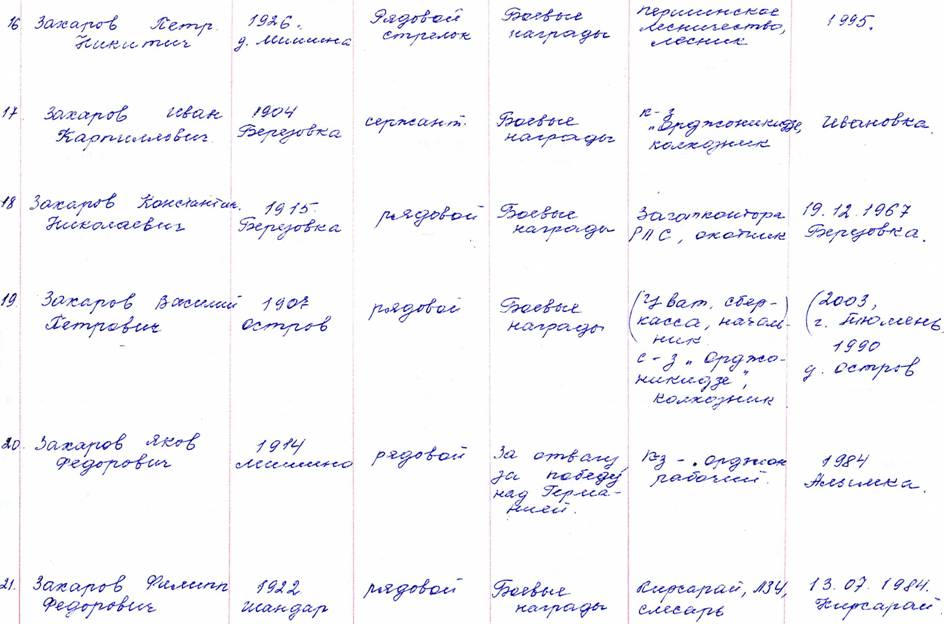 16 Захаров Петр Никитич
1926.
д. Мишина
Рядовой
стрелок
Боевые
награды
Першинское
лесничество,
лесник
1995.
17 Захаров Иван
Карпиллович
1904
Березовка
сержант.
Боевые
награды
к-з
"Орджоникидзе,
колхозник
Ивановка.
18 Захаров Константин.
Николаевич
1915.
Березовка
рядовой
Боевые
награды
Заготконтора
РПС, охотник
19.12.1967
Березовка.
19 Захаров Василий
Петрович
1907
остров
рядовой
Боевые
награды
(Уват. сбер-
касса, началь-
ник)
с-з "Орджо-
никидзе",
колхозник
(2003,
г. Тюмень,
1990
д. остров
20. Захаров Яков
Федорович
1914
Мишино
рядовой
За отвагу,
за победу
над Герма-
нией.
кз - Орджон
рабочий.
1984
Алымка.
21. Захаров Филипп
Федорович
1922
Шандар
рядовой
Боевые
награды
Кирсарай, ЛЗУ,
слесарь
13.07.1984.
Кирсарай.